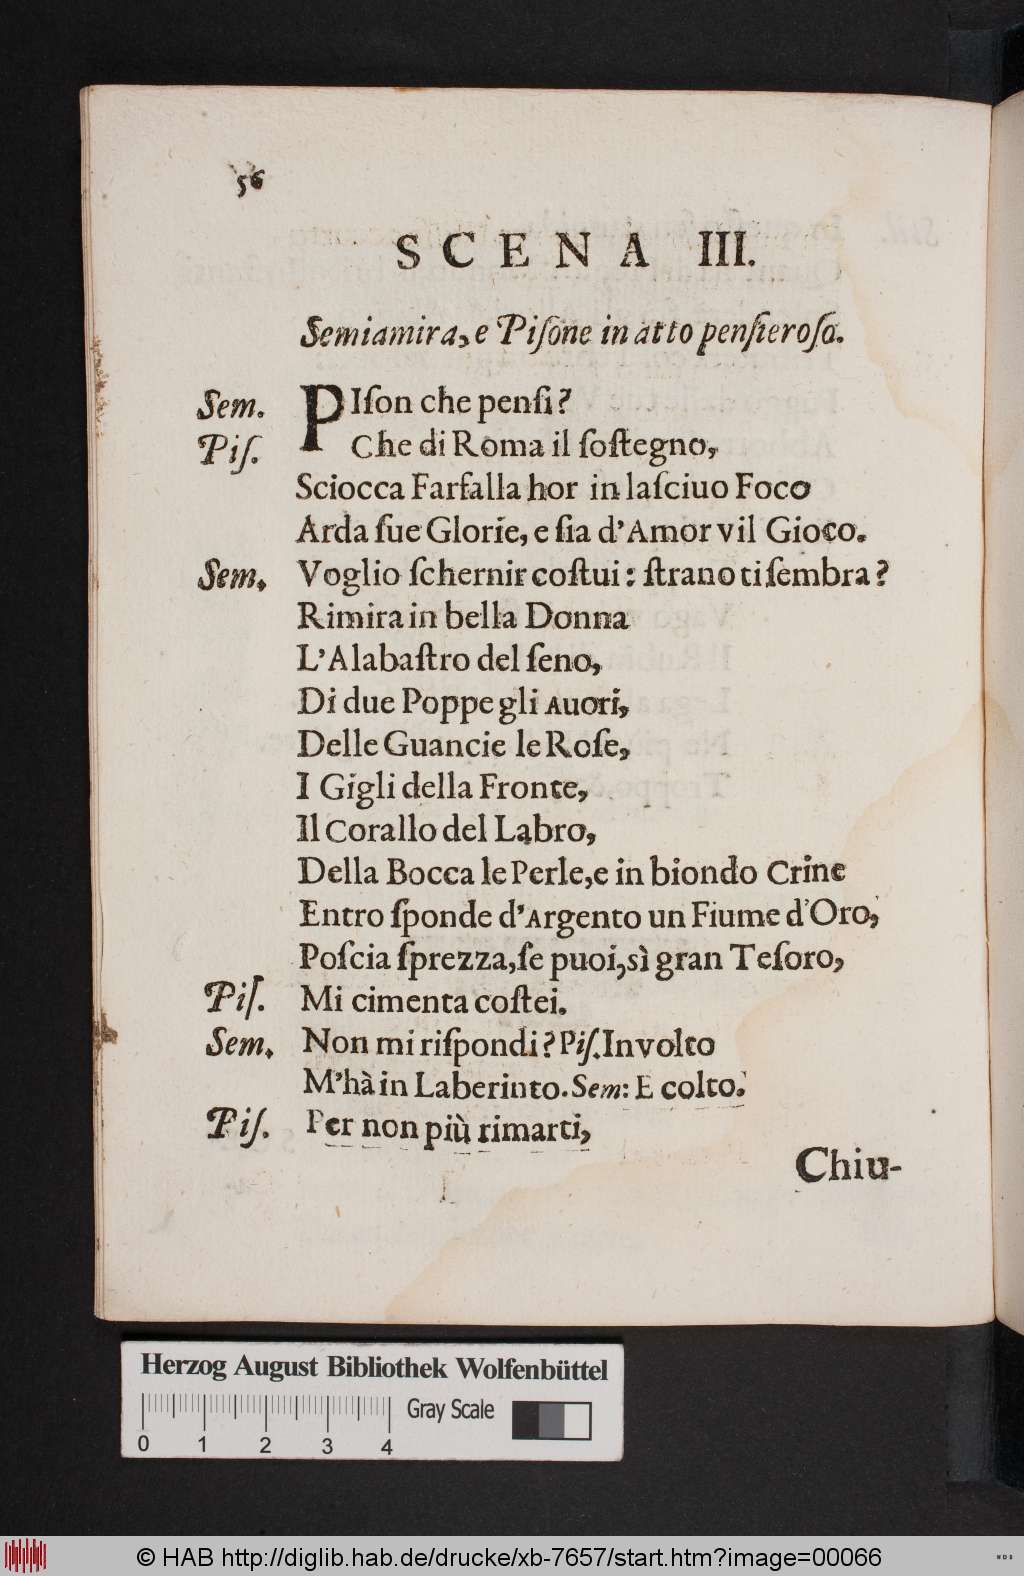 56
SCENA III.
Semiamira, e Piſone in atto penſieroſo.
Sem. PIſon che penſi?
Piſ. Che di Roma il ſoſtegno,
Sciocca Farfalla hor in laſciuo Foco
Arda ſue Glorie, e ſia d'Amor vil Gioco.
Sem. Voglio ſchernir coſtui: ſtrano ti ſembra?
Rimira in bella Donna
L'Alabaſtro del ſeno,
Di due Poppe gli Auori,
Delle Guancie le Roſe,
I Gigli della Fronte,
Il Corallo del Labro,
Della Bocca le Perle, e in biondo Crine
Entro ſponde d'Argento un Fiume d'Oro,
Poſcia ſprezza, ſe puoi, sì gran Teſoro,
Piſ. Mi cimenta coſtei.
Sem. Non mi riſpondi? Piſ. Involto
M'hà in Laberinto. Sem: E colto.
Piſ. Per non più rimarti,
Chiu-
Herzog August Bibliothek Wolfenbüttel
Gray Scale
0 1 2 3 4
© HAB http://diglib.hab.de/drucke/xb-7657/start.htm?image=00066